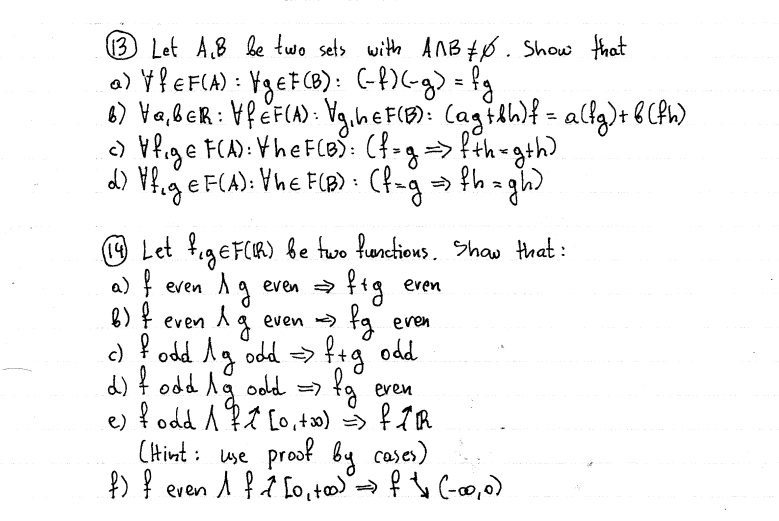 ⑬ Let A,B be two sets with A∩B≠∅. Show that
a) ∀f∈F(A) : ∀g∈F(B) : (-f)(-g) = fg
b) ∀a,b∈ℝ : ∀f∈F(A) : ∀g,h∈F(B) : (ag+bh)f = a(fg)+b(fh)
c) ∀f,g∈F(A) : ∀h∈F(B) : (f=g ⇒ f+h=g+h)
d) ∀f,g∈F(A) : ∀h∈F(B) : (f=g ⇒ fh=gh)
⑭ Let f,g∈F(ℝ) be two functions. Show that :
a) f even ∧ g even ⇒ f+g even
b) f even ∧ g even ⇒ fg even
c) f odd ∧ g odd ⇒ f+g odd
d) f odd ∧ g odd ⇒ fg even
e) f odd ∧ f↗[0,+∞) ⇒ f↗ℝ
(Hint : use proof by cases)
f) f even ∧ f↗[0,+∞) ⇒ f↘(-∞,0)